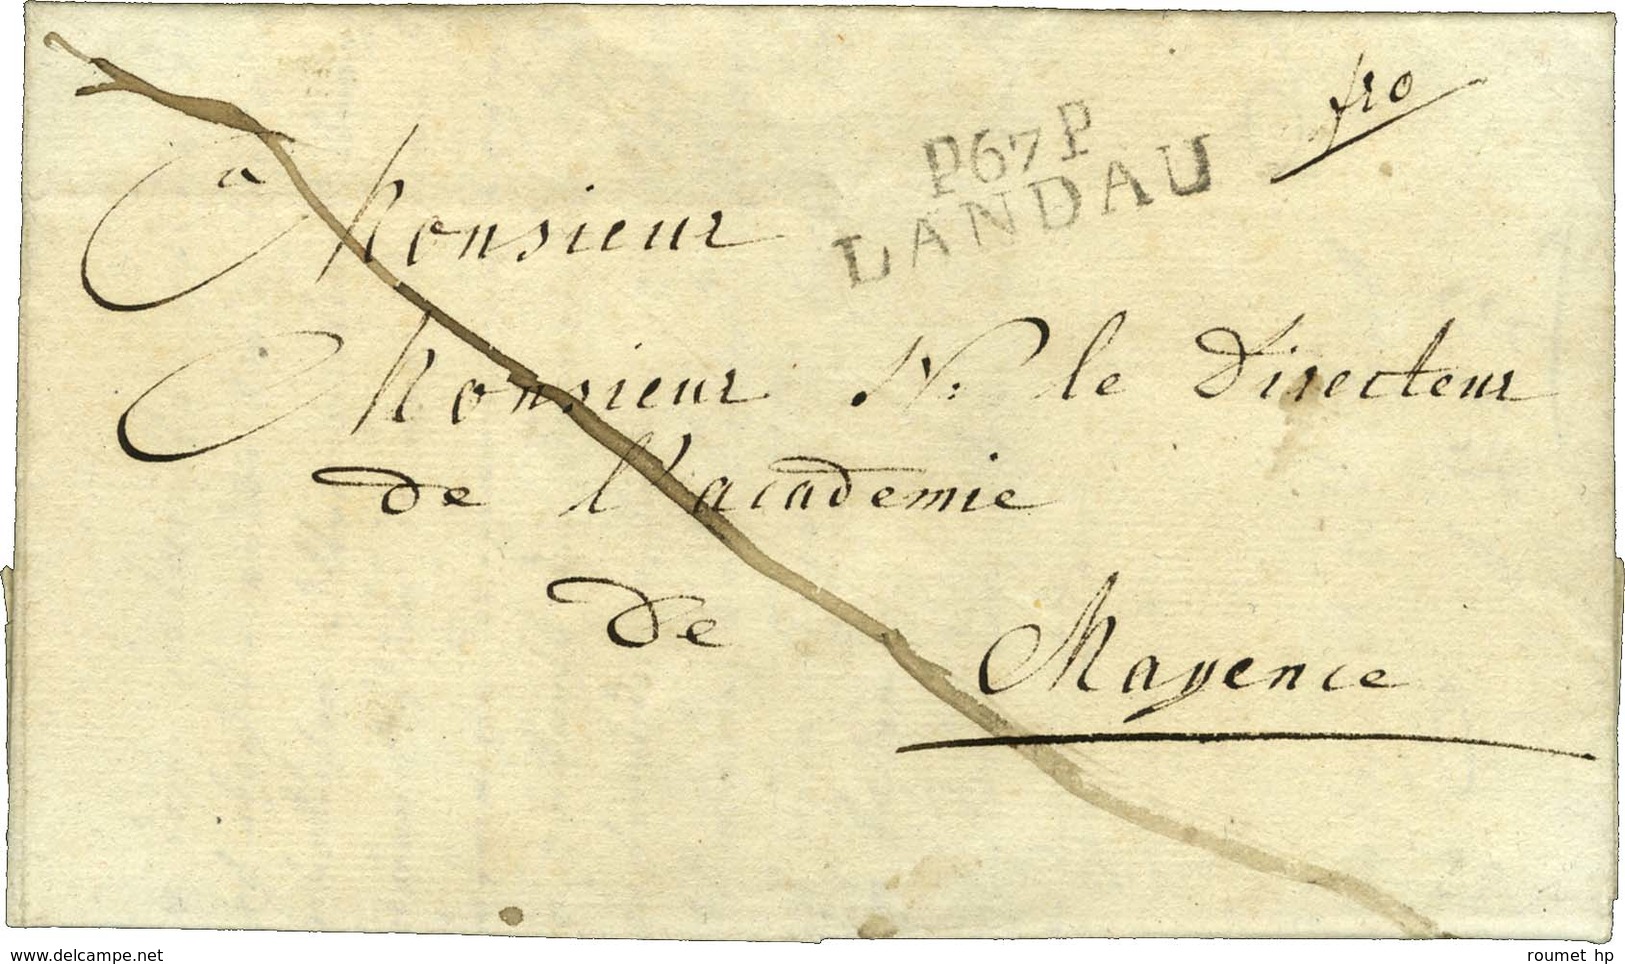 fro
P67P
LANDAU
a Monsieur
Monsieur N: le Directeur
de l'academie
de Mayence
www.delcampe.net
roumet hp